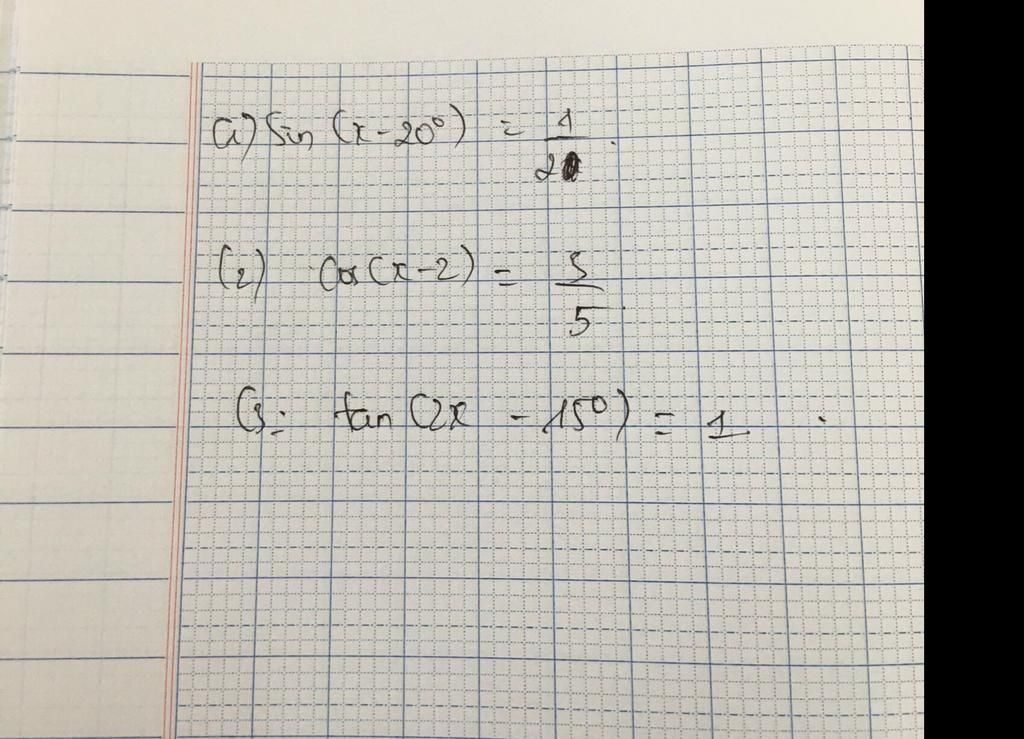 a) Sin (x - 20°) = 1/2.
(2) Cos(x-2) = 5/5.
(3: tan (2x - 15°) = 1.